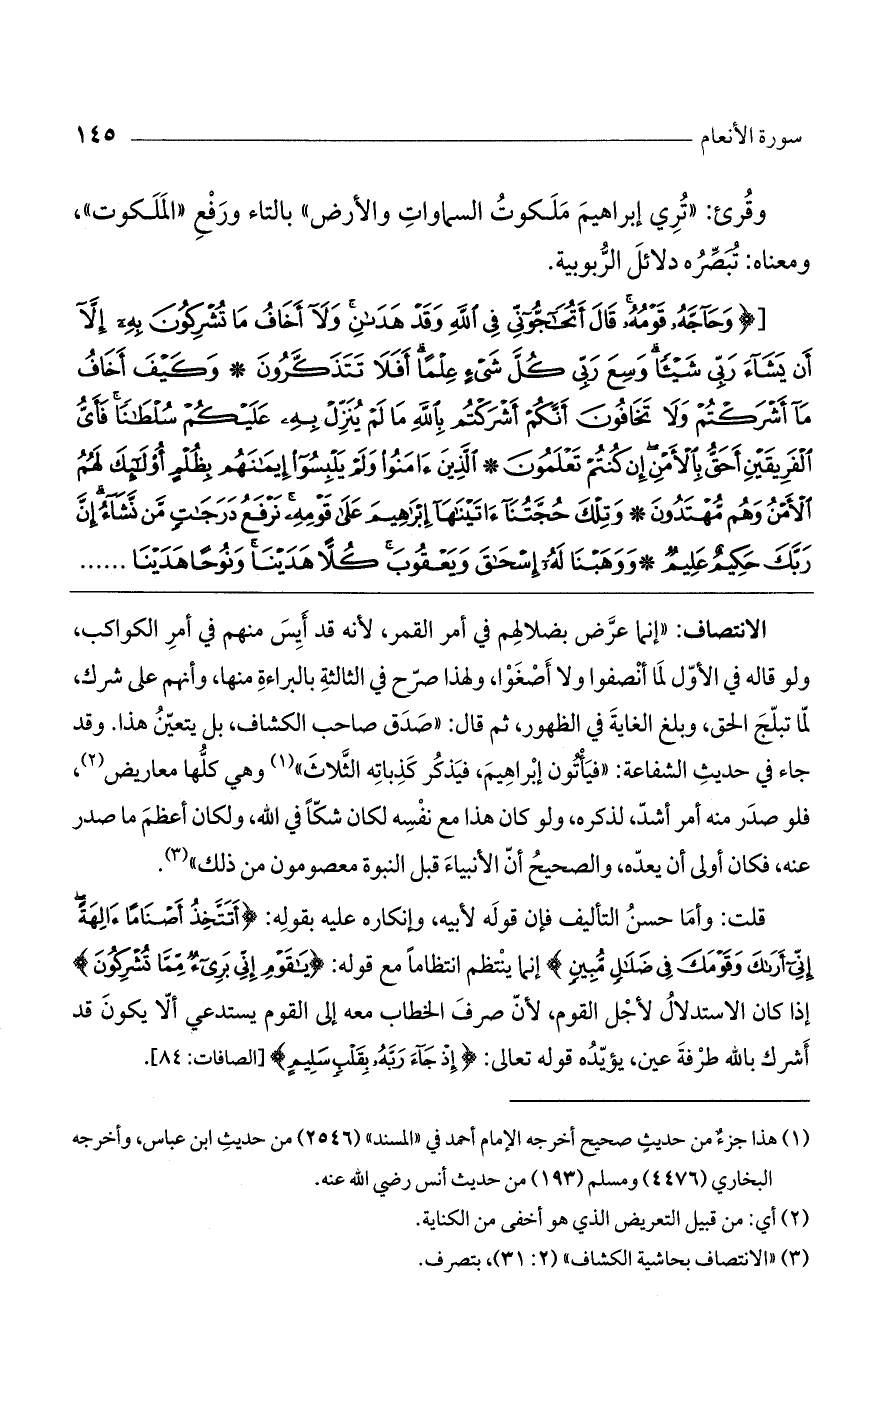 سورة الأنعام ١٤٥
وقُرئ: «تُرِي إبراهيمَ مَلَكوتُ السماواتِ والأرض» بالتاء ورَفْعِ «المَلَكوت»،
ومعناه: تُبَصِّرُه دلائلَ الرُّبوبية.
[﴿ وَحَآجَّهُۥ قَوْمُهُۥۚ قَالَ أَتُحَٰٓجُّوٓنِّى فِى ٱللَّهِ وَقَدْ هَدَىٰنِۚ وَلَآ أَخَافُ مَا تُشْرِكُونَ بِهِۦٓ إِلَّآ
أَن يَشَآءَ رَبِّى شَيْـًٔاۗ وَسِعَ رَبِّى كُلَّ شَىْءٍ عِلْمًاۗ أَفَلَا تَتَذَكَّرُونَ * وَكَيْفَ أَخَافُ
مَآ أَشْرَكْتُمْ وَلَا تَخَافُونَ أَنَّكُمْ أَشْرَكْتُم بِٱللَّهِ مَا لَمْ يُنَزِّلْ بِهِۦ عَلَيْكُمْ سُلْطَٰنًاۚ فَأَىُّ
ٱلْفَرِيقَيْنِ أَحَقُّ بِٱلْأَمْنِۖ إِن كُنتُمْ تَعْلَمُونَ * ٱلَّذِينَ ءَامَنُوا۟ وَلَمْ يَلْبِسُوٓا۟ إِيمَٰنَهُم بِظُلْمٍ أُو۟لَٰٓئِكَ لَهُمُ
ٱلْأَمْنُ وَهُم مُّهْتَدُونَ * وَتِلْكَ حُجَّتُنَآ ءَاتَيْنَٰهَآ إِبْرَٰهِيمَ عَلَىٰ قَوْمِهِۦۚ نَرْفَعُ دَرَجَٰتٍ مَّن نَّشَآءُۗ إِنَّ
رَبَّكَ حَكِيمٌ عَلِيمٌ * وَوَهَبْنَا لَهُۥٓ إِسْحَٰقَ وَيَعْقُوبَۚ كُلًّا هَدَيْنَاۚ وَنُوحًا هَدَيْنَا ......
الانتصاف: «إنما عرَّض بضلالِهم في أمر القمر، لأنه قد أَيِسَ منهم في أمرِ الكواكب،
ولو قاله في الأوّل لَما أنْصفوا ولا أَصْغَوْا، ولهذا صرّح في الثالثةِ بالبراءةِ منها، وأنهم على شرك،
لمّا تبلّجَ الحق، وبلغ الغايةَ في الظهور، ثم قال: «صَدَق صاحب الكشاف، بل يتعيّنُ هذا. وقد
جاء في حديثِ الشفاعة: «فيَأْتُون إبْراهيمَ، فيَذكُر كَذِباتِه الثَّلاثَ»(١) وهي كلُّها معاريض(٢)،
فلو صدَر منه أمر أشدّ، لذكره، ولو كان هذا مع نفْسِه لكان شكّاً في الله، ولكان أعظمَ ما صدر
عنه، فكان أولى أن يعدّه، والصحيحُ أنّ الأنبياءَ قبل النبوة معصومون من ذلك»(٣).
قلت: وأمَا حسنُ التأليف فإن قولَه لأبيه، وإنكاره عليه بقولِه: ﴿أَتَتَّخِذُ أَصْنَامًا ءَالِهَةًۖ
إِنِّىٓ أَرَىٰكَ وَقَوْمَكَ فِى ضَلَٰلٍ مُّبِينٍ ﴾ إنما ينْتظم انتظاماً مع قوله: ﴿يَٰقَوْمِ إِنِّى بَرِىٓءٌ مِّمَّا تُشْرِكُونَ ﴾
إذا كان الاستدلالُ لأجْل القوم، لأنّ صرفَ الخطاب معه إلى القوم يستدعي ألّا يكونَ قد
أشرك بالله طرْفةَ عين، يؤيّدُه قوله تعالى: ﴿ إِذْ جَآءَ رَبَّهُۥ بِقَلْبٍ سَلِيمٍ﴾ [الصافات: ٨٤].
(١) هذا جزءٌ من حديثٍ صحيح أخرجه الإمام أحمد في «المسند» (٢٥٤٦) من حديثِ ابن عباس، وأخرجه
البخاري (٤٤٧٦) ومسلم (١٩٣) من حديث أنس رضي الله عنه.
(٢) أي: من قبيل التعريض الذي هو أخفى من الكناية.
(٣) «الانتصاف بحاشية الكشاف» (٢: ٣١)، بتصرف.